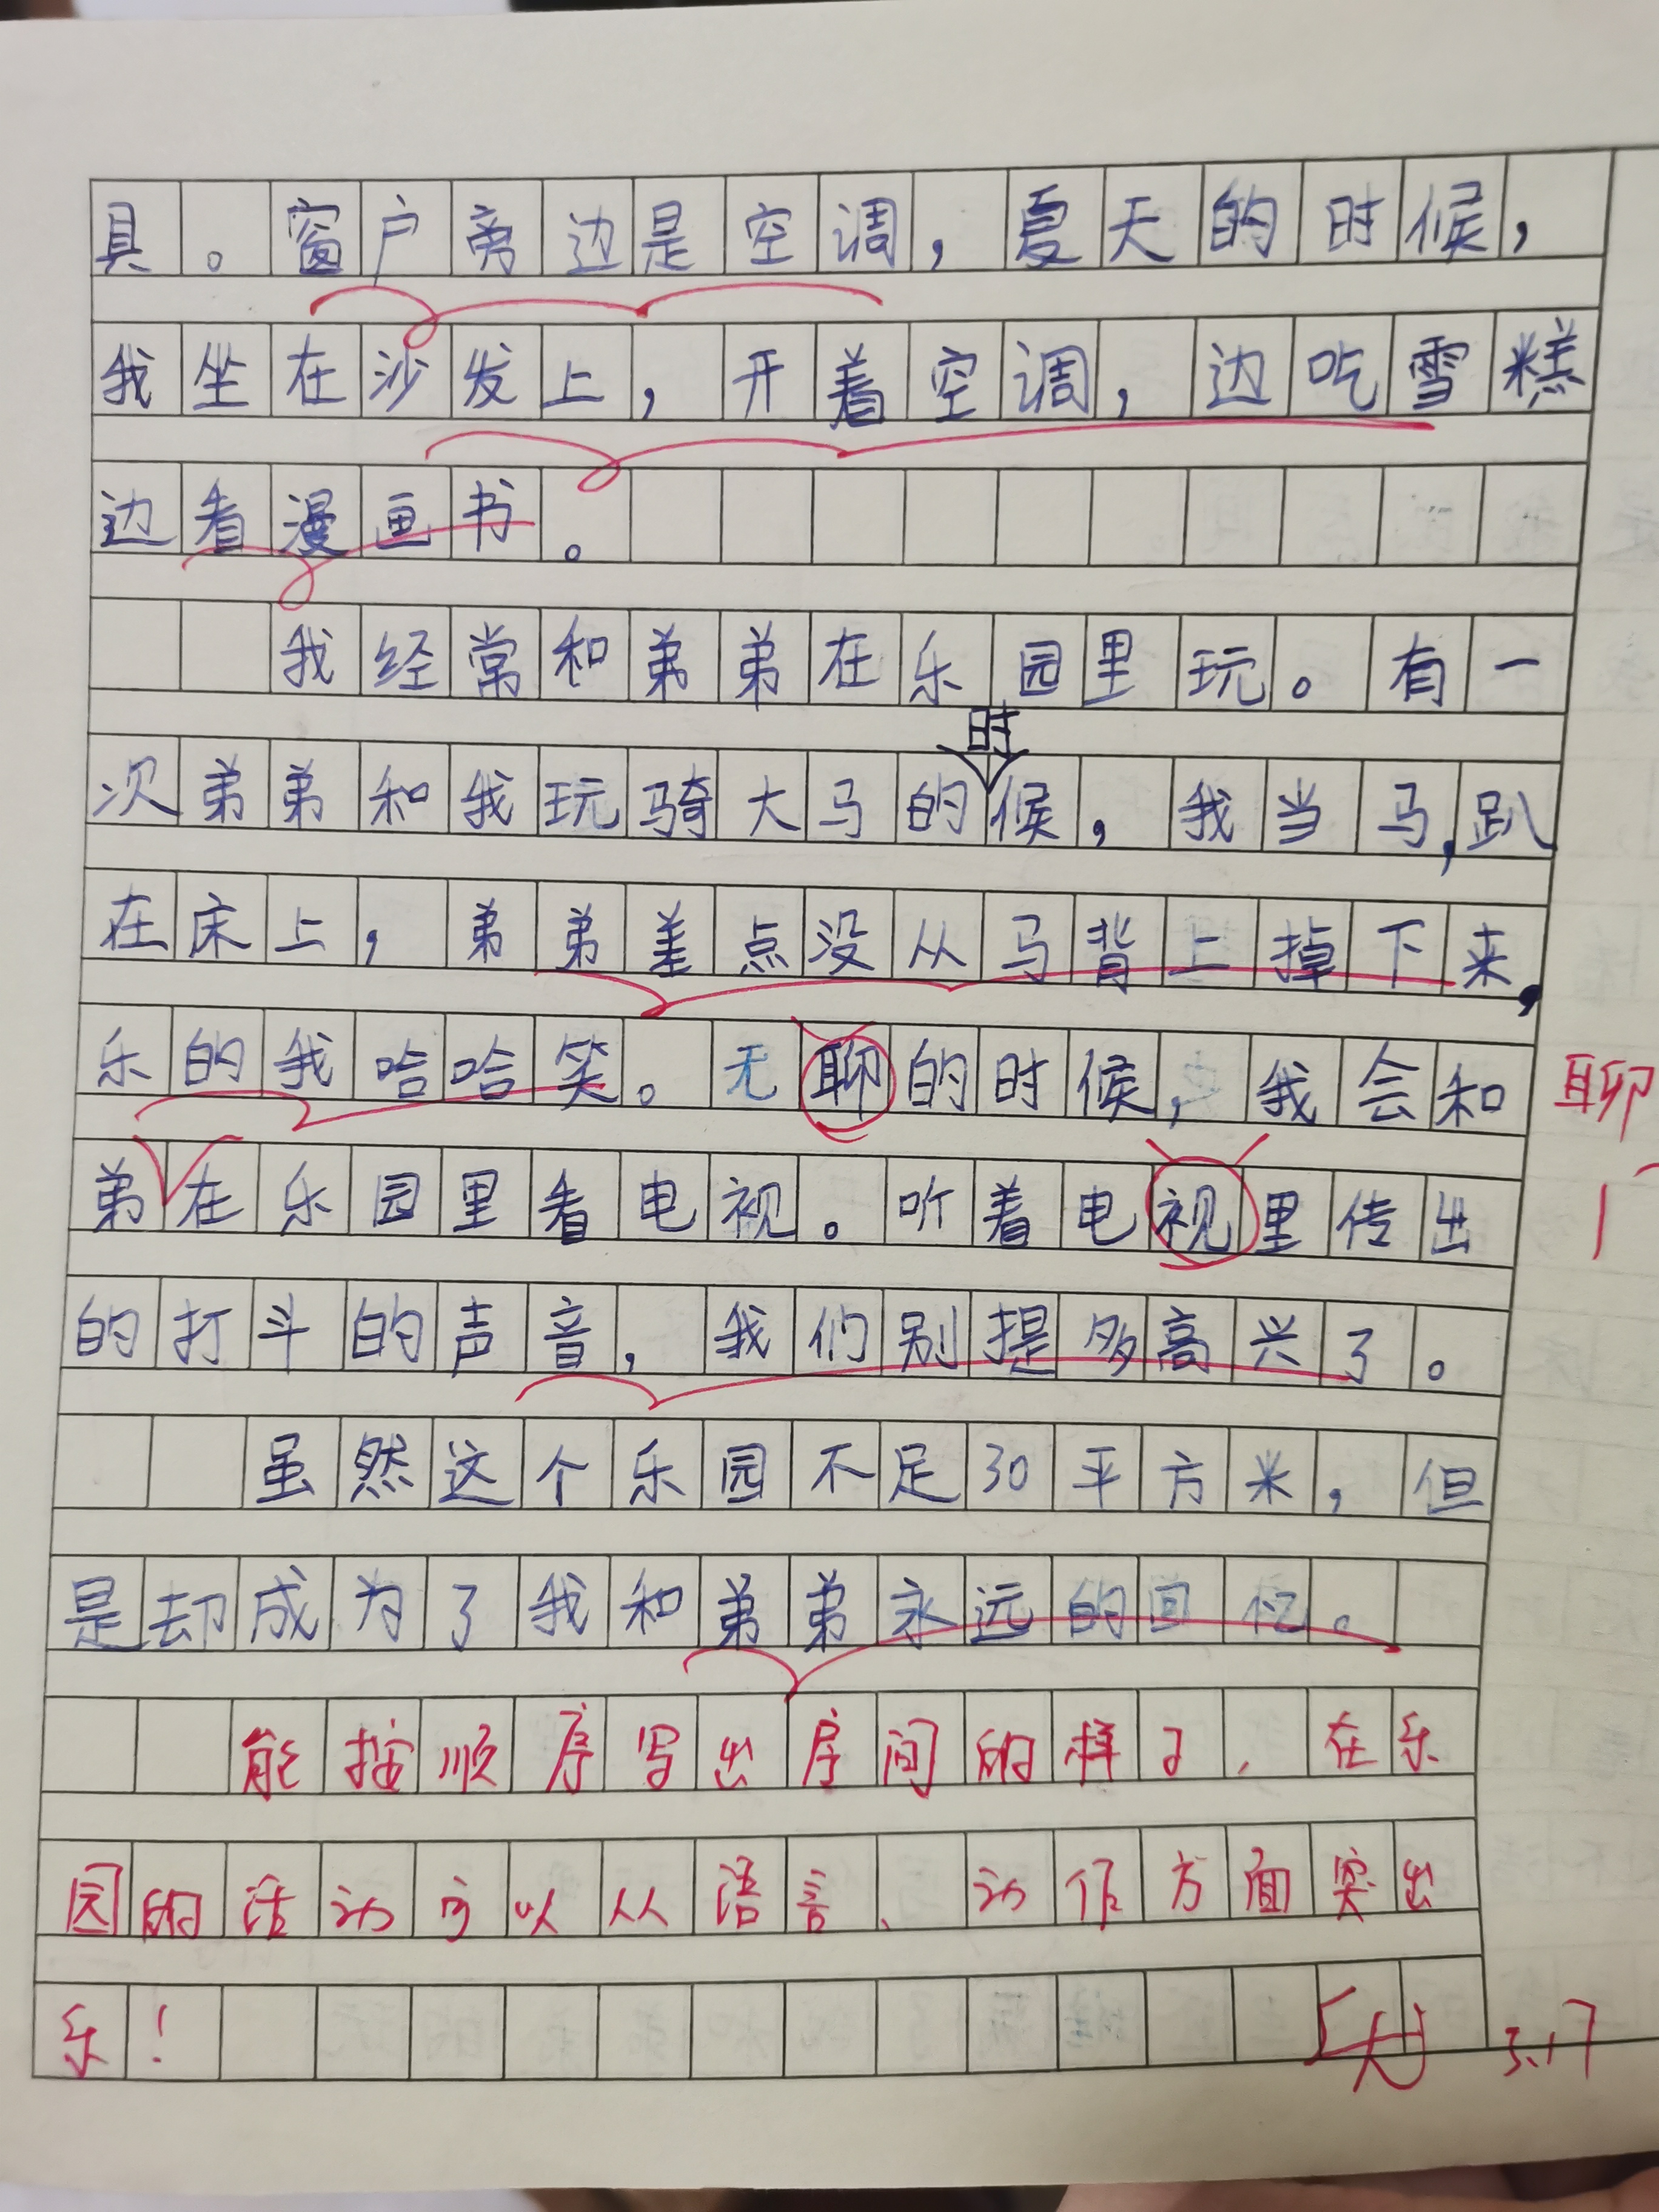 具。窗户旁边是空调，夏天的时候，
我坐在沙发上，开着空调，边吃雪糕
边看漫画书。
我经常和弟弟在乐园里玩。有一
时
次弟弟和我玩骑大马的候，我当马,趴
在床上，弟弟差点没从马背上掉下来，
乐的我哈哈笑。无聊的时候，我会和
聊
弟在乐园里看电视。听着电视里传出
的打斗的声音，我们别提多高兴了。
虽然这个乐园不足30平方米，但
是却成为了我和弟弟永远的回忆。
能按顺序写出房间的样子，在乐
园的活动可以从语言、动作方面突出
乐！
优 3.17